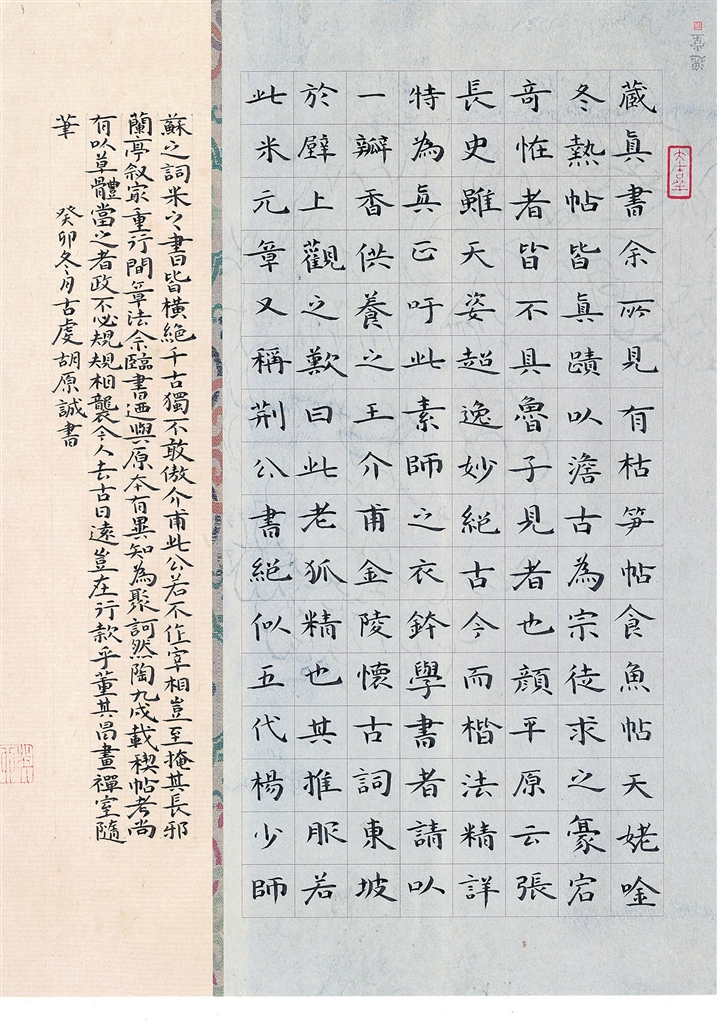 藏真書余所見有枯筍帖食魚帖天姥唫
冬熱帖皆真蹟以澹古為宗徒求之豪宕
奇恠者皆不具魯子見者也顏平原云張
長史雖天姿超逸妙絕古今而楷法精詳
特為真正吁此素師之衣鉢學書者請以
一瓣香供養之王介甫金陵懷古詞東坡
於壁上觀之歎曰此老狐精也其推服若
此米元章又稱荊公書絕似五代楊少師
蘇之詞米之書皆橫絕千古獨不敢傲介甫此公若不作宰相豈至掩其長邪
蘭亭敘家重行間章法余臨書迺與原本有異知為聚訶然陶九成載稧帖考尚
有以草體當之者政不必規規相襲今人去古日遠豈在行款乎董其昌畫禪室隨
筆
癸卯冬月古虔胡原誠書